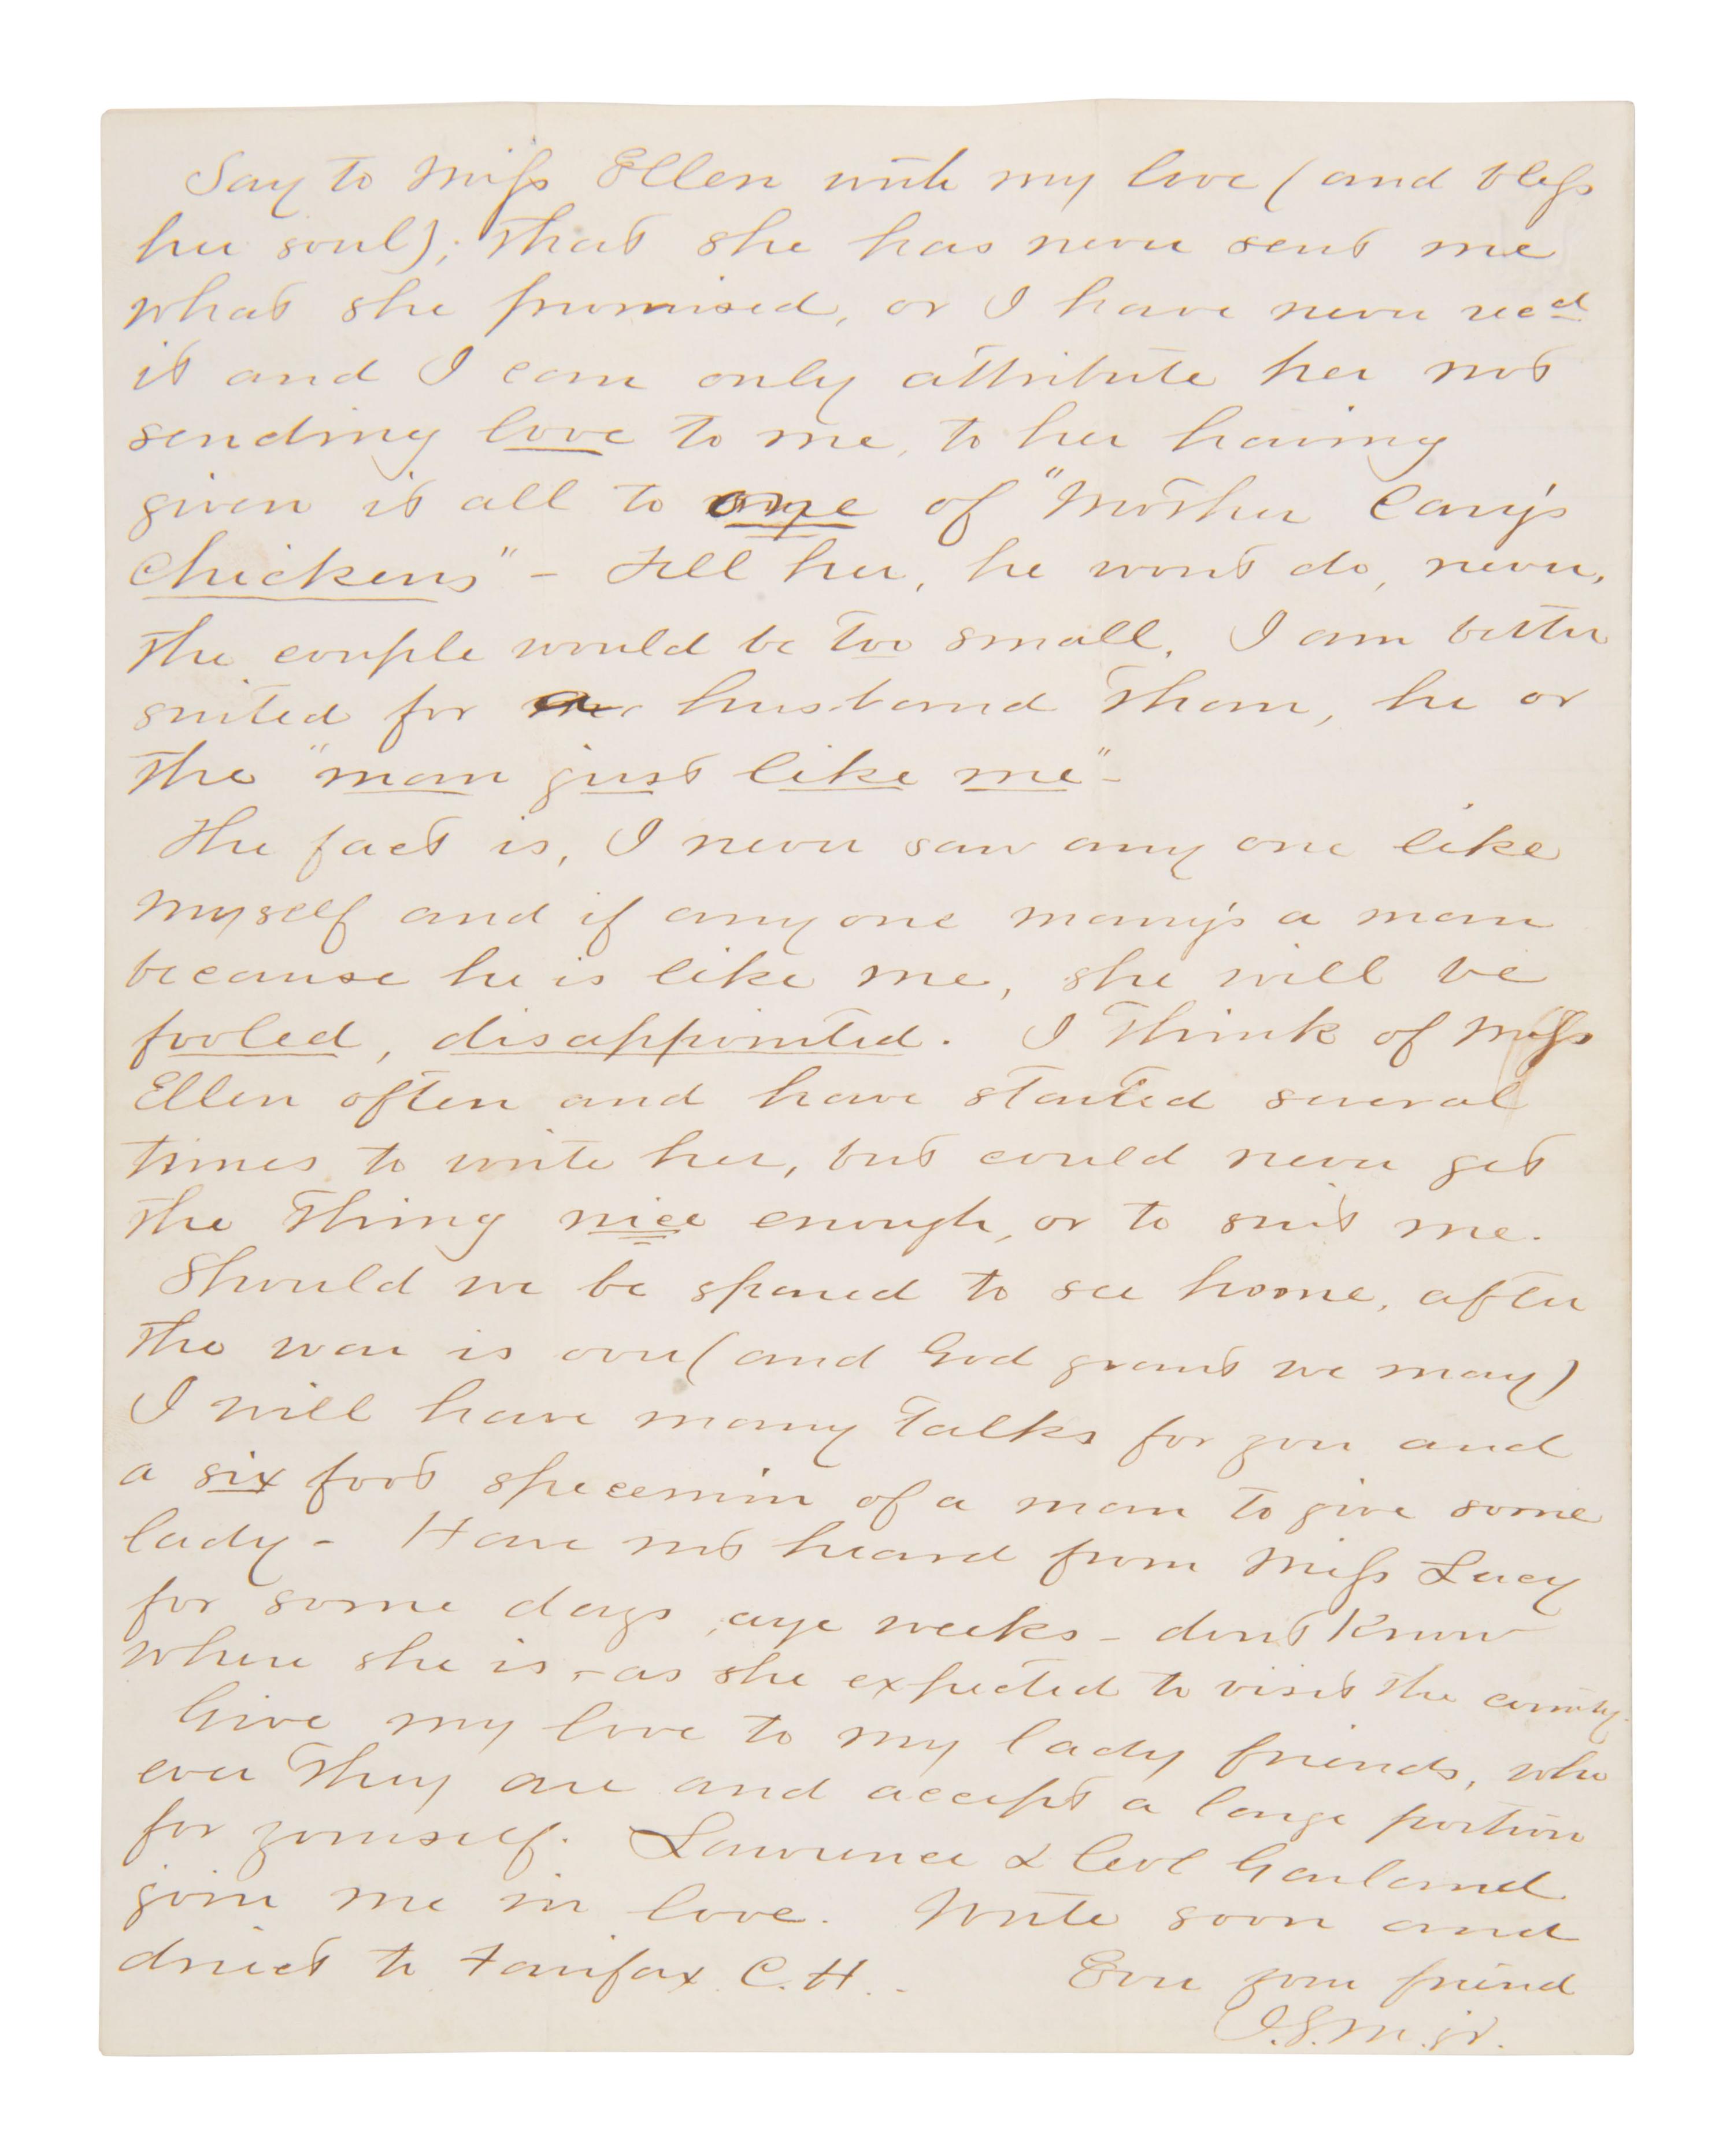 Say to Miss Ellen with my love (and bless
her soul); that she has never sent me
what she promised, or I have never recd
it and I can only attribute her not
sending love to me, to her having
given it all to one of "Mother Cary's
Chickens" - Tell her, he wont do, never,
the couple would be too small. I am better
suited for a husband than, he or
the "man just like me" -
The fact is, I never saw any one like
myself and if any one marry's a man
because he is like me, she will be
fooled, disappointed. I think of Miss
Ellen often and have started several
times to write her, but could never get
the thing nice enough, or to suit me.
Should we be spared to see home, after
the war is over (and God grant we may)
I will have many talks for you and
a six foot specemin of a man to give some
lady - Have not heard from Miss Lucy
for some days, aye weeks - dont know
where she is, - as she expected to visit the county.
Give my love to my lady friends, who
ever they are and accept a large portion
for yourself. Lawrence & Col Garland
join me in love. Write soon and
direct to Fairfax C.H. - Ever your friend
J.S.M. jr.